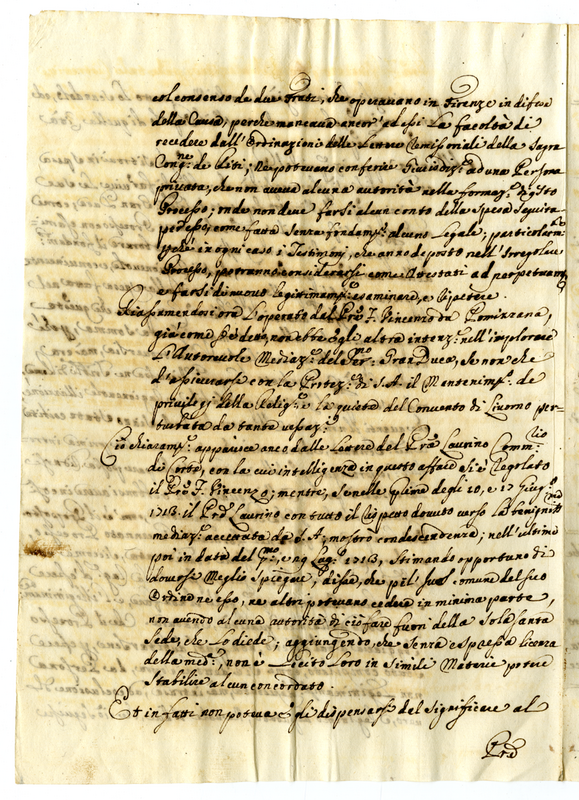 col consenso de due Frati, che operavano in Firenze in difesa
della Causa, perche mancava ancor' ad essi La facoltà di
recedere dall' Ordinazioni delle Lettere Remissoriali della Sagra
Cong.ne de Riti; Ne potevano conferire Giurisdiz.e ad una Persona
privata, che non aveva alcuna autorità nella formaz.e di q.sto
Processo; onde non deve farsi alcun conto della Spesa seguita
p. esso, come fatta senza fondam.to alcuno Legale; particolarm.te
perche in ogni caso i Testimonj, che anno deposto nell' Irregolare
Processo, potranno considerarsi come Attestati ad perpetuam,
e farsi di nuovo legitimam.te esaminare, e ripetere.
Riassumendosi ora L'operato dal Pre. F. Vincenzo da
già come si è detto, non ebbe Egli altra intenz.e nell' implorare
L'Autorevole Mediaz.e del Ser.mo Gran Duca, se non che
d'assicurarsi con la Protez.e di S.A. il Mantenim.to de
privilegj della Relig.e e la quiete del Convento di Livorno per-
turbata da tante vessaz.i
Ciò chiaram.te apparisce anco dalle Lettere del Pre. Laurino Comm.rio
di Corte, con la cui intelligenza in questo affare si è regolato
il Pre. F. Vincenzo; mentre, se nelle prime degli 10, e 17 Giug.o
1713. il Pre. Laurino con tutto il rispetto dovuto verso La benignità
mediaz.e accettata da S.A. mostrò condescendenza; nell' ultime
poi in data del p.mo, e 1713, Stimando opportuno di
doversi Meglio Spiegare, disse, che nè il Sup.e comune del suo
Ordine ne esso, ne altri potevano cedere in minima parte,
non avendo alcuna autorità di ciò fare fuori della Sola Santa
Sede, che Lo diede; aggiungendo, che Senza espressa licenza
della med.a, non è Lecito Loro in Simile Materie potere
Stabilire alcun concordato.
Et in fatti non poteva egli dispensarsi dal Significare al
Pre.